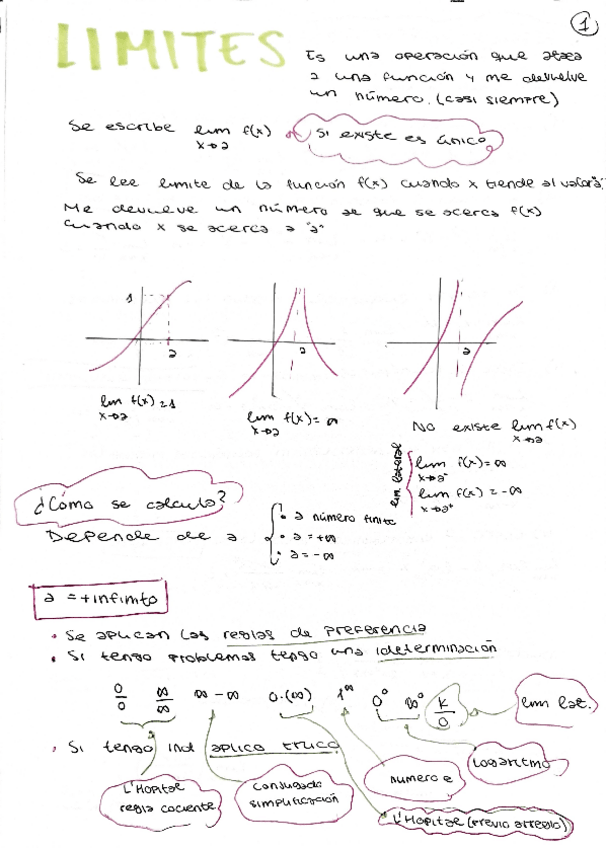 1
LIMITES
Es una operación que ataca
a una función y me devuelve
un número. (casi siempre)
Se escribe lim f(x)
x→a
Si existe es único
Se lee limite de la función f(x) cuando x tiende al valor "a"
Me devuelve un número al que se acerca f(x)
cuando x se acerca a "a"
1
a
a
a
lim f(x) = 1
x→a
lim f(x) = ∞
x→a
No existe lim f(x)
x→a
lim lateral
lim f(x) = ∞
x→a⁻
lim f(x) = -∞
x→a⁺
¿Cómo se calcula?
Depende de a
• a número finito
• a = +∞
• a = -∞
a = +infinito
• Se aplican las reglas de preferencia
• Si tengo problemas tengo una ideterminación
0/0 ∞/∞ ∞-∞ 0·(∞) 1^∞ 0⁰ ∞⁰ K/0
lim lat.
• Si tengo ind aplico truco
L'Hopital
regla cociente
Conjugada
simplificación
numero e
logaritmo
L'Hopital (previo arreglo)